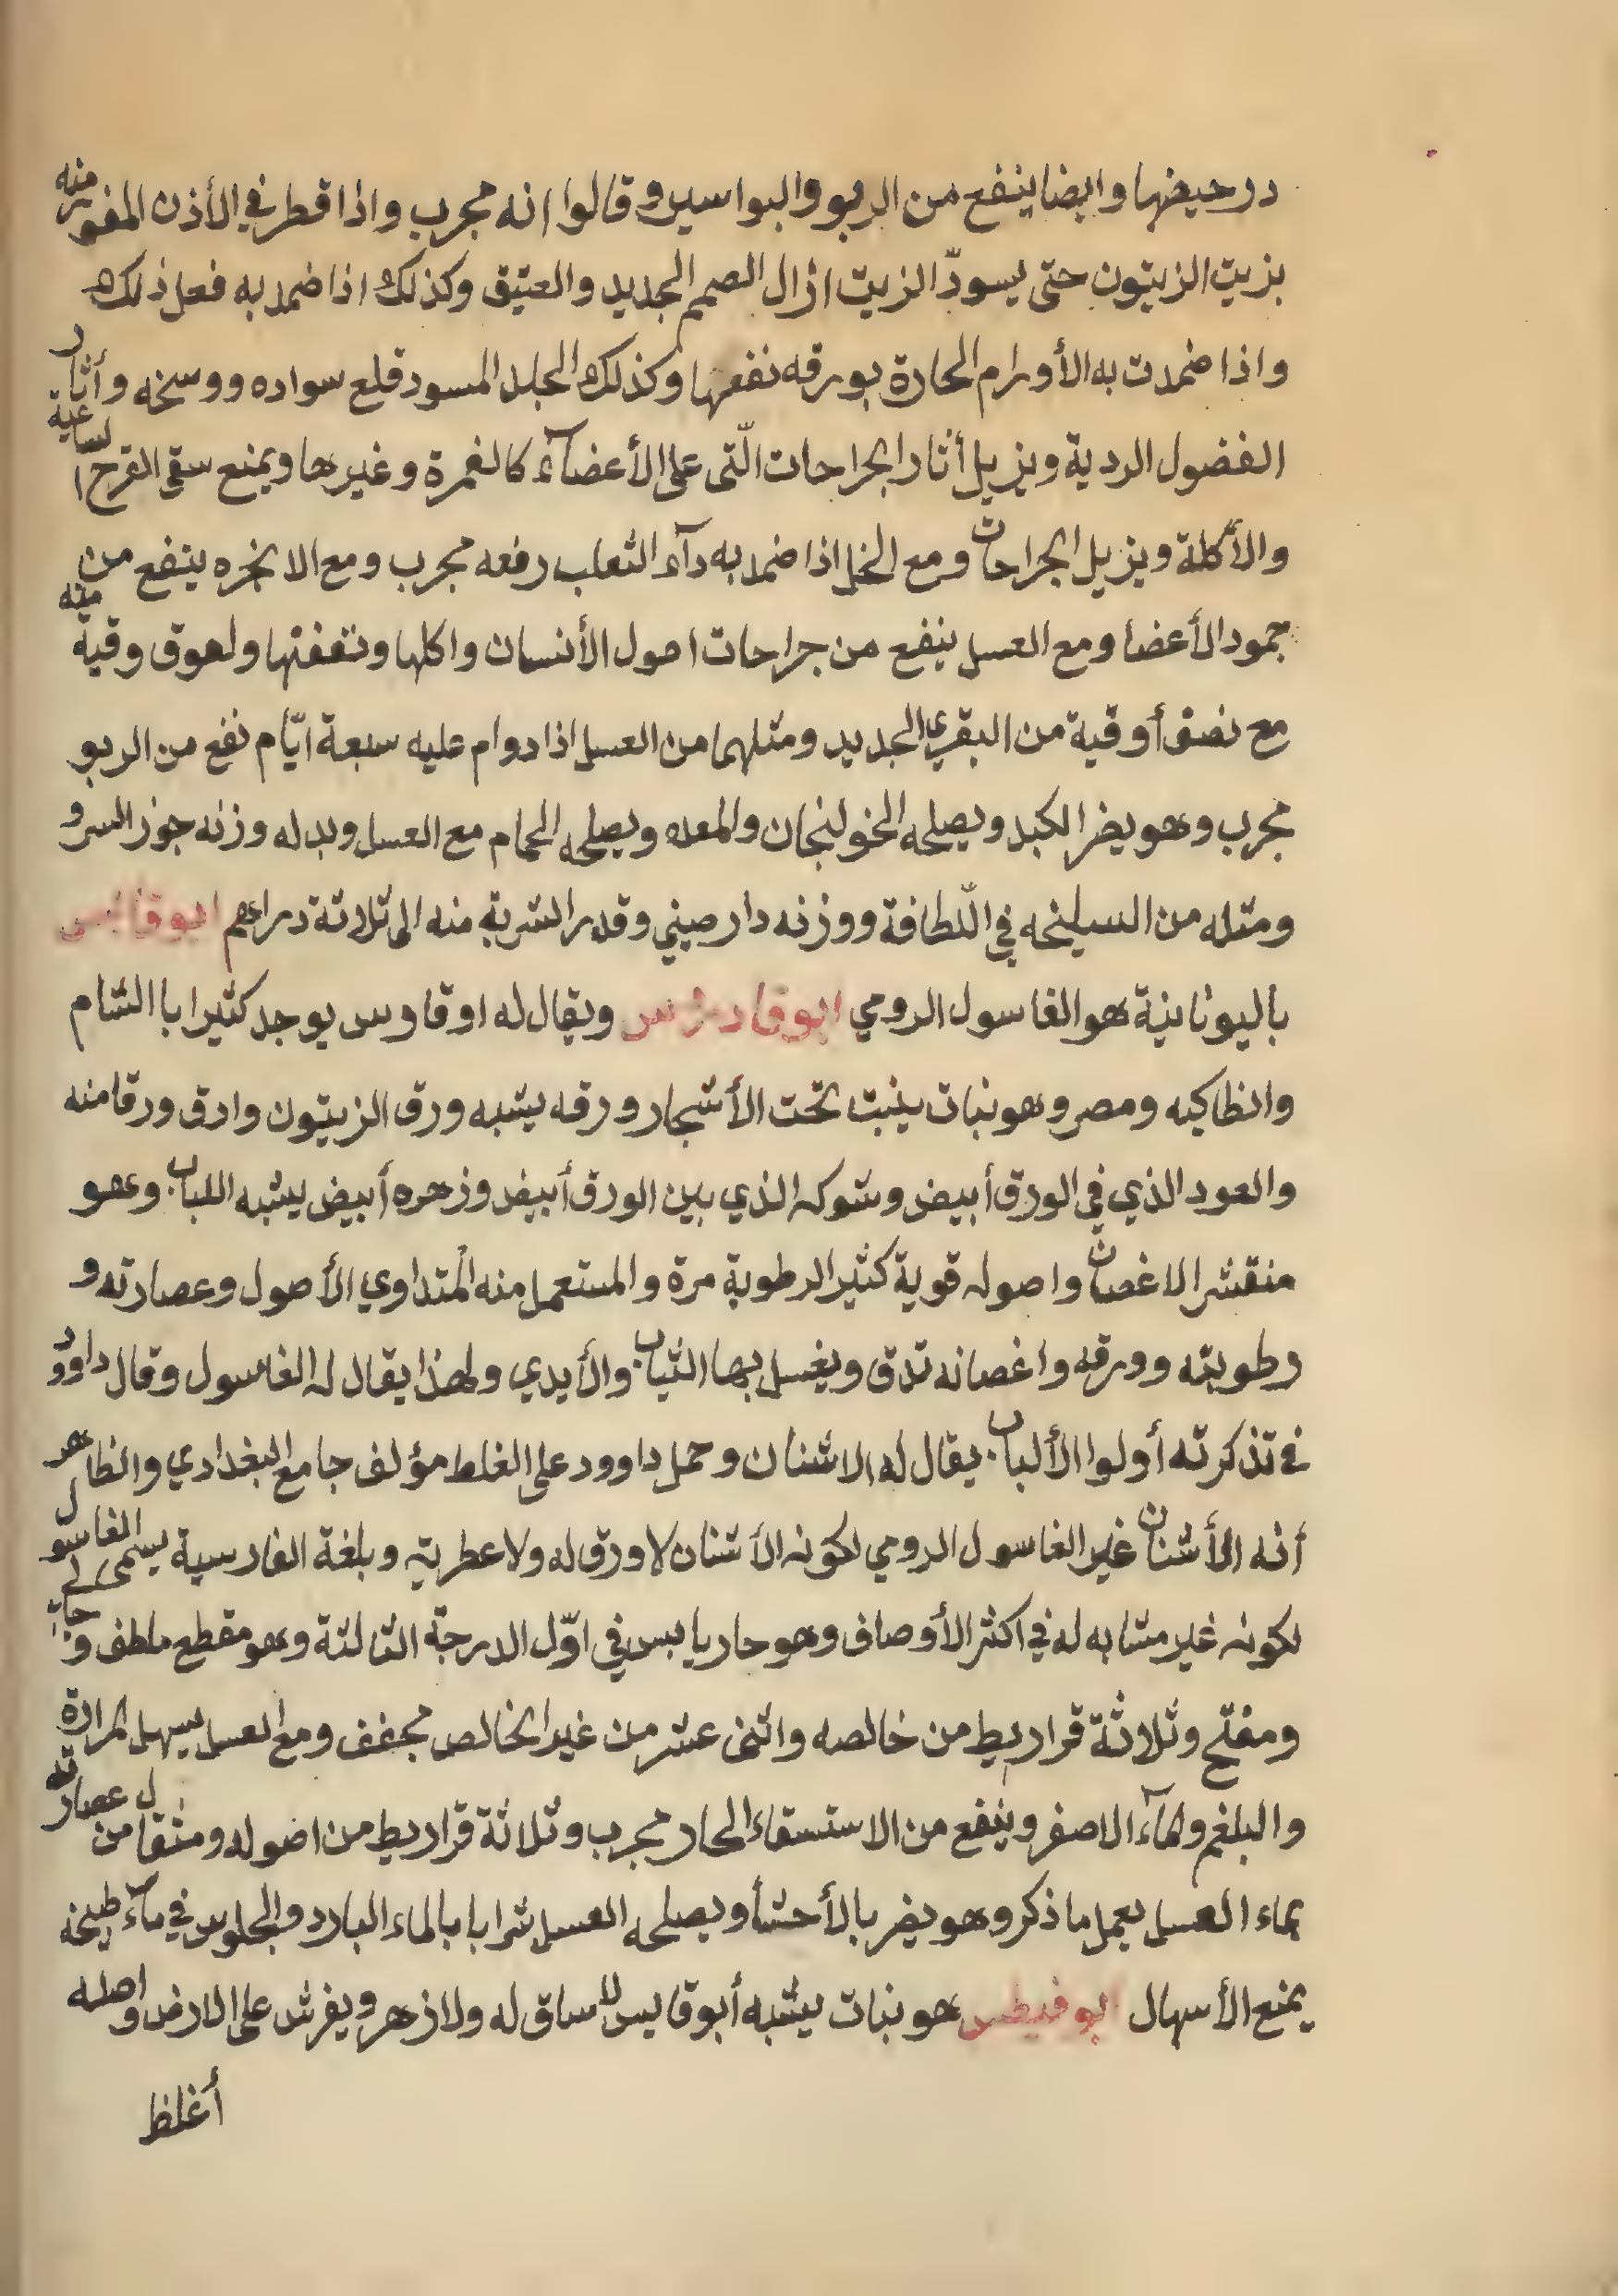 در حيضها وايضا ينفع من الربو والبواسير وقالوا انه مجرب واذا قطر في الأذن المغور منه
بزيت الزيتون حتى يسودّ الزيت ازال الصمم الجديد والعتيق وكذلك اذا ضمد به فعل ذلك
واذا ضمدت به الأورام الحارة بورقه نفعها وكذلك الجلد المسود قلع سواده ووسخه وأثار
الفضول الردية ويزيل أثار الجراحات الّتى على الأعضآء كالغمرة وغيرها ويمنع سقى القرح الساعية
والأكلة ويزيل الجراحات ومع الخل اذا ضمد به دآء الثعلب رفعه مجرب ومع الانجره ينفع من
جمود الأعضا ومع العسل ينفع من جراحات اصول الأنسان واكلها وتعفنها ولعوق وقية منه
مع نصف أوقية من البقري الجديد ومثلهما من العسل اذا دوام عليه سبعة ايّام نفع من الربو
مجرب وهو يضر الكبد ويصلحه الخولنجان والمعده ويصلحه الحمام مع العسل وبدله وزنه جوز السرو
ومثله من السليخه في اللّطافة ووزنه دارصيني وقدر الشربة منه الى ثلاثة دراهم ابوقايس
باليونانية هو الغاسول الرومي ويقال له اوقاوس يوجد كثيرا باالشام
وانطاكيه ومصر وهو نبات ينبت تحت الأشجار ورقه يشبه ورق الزيتون وادق ورقا منه
والعود الذي في الورق أبيض وشوكه الذي بين الورق أبيض وزهره أبيض يشبه اللباب وهو
منقشر الاغصان واصوله قوية كثير الرطوبة مرة والمستعمل منه المتداوي الأصول وعصارته و
رطوبته وورقه واغصانه تدق ويغسل بها الثياب والأيدي ولهذا يقال له الغاسول وقال داوود
في تذكرته أولوا الألباب يقال له الاشنان وحمل داوود على الغلط مؤلف جامع البغدادي والظاهر
أنه الأشنان غير الغاسول الرومي لكونه الأشنان لا ورق له ولا عطرية وبلغة الفارسية يسمى الغاسول
لكونه غير مشابه له في اكثر الأوصاف وهو حار يابس في اوّل الدرجة الثالثة وهو مقطع ملطف و
ومفتح وثلاثة قراريط من خالصه واثنى عشر من غير الخالص مجفف ومع العسل يسهل المرارة
والبلغم والمآء الاصفر وينفع من الاستسقاء الحار مجرب وثلاثة قراريط من اصوله ومثقال من عصارته
بماء العسل يعمل ما ذكر وهو يضر بالأحشأ ويصلحه العسل شرابا بالماء البارد والجلوس في مآء طبيخه
يمنع الأسهال ابوفيطس هو نبات يشبه أبوقايس لا ساق له ولا زهر ويفرش على الارض واصله
أغلظ